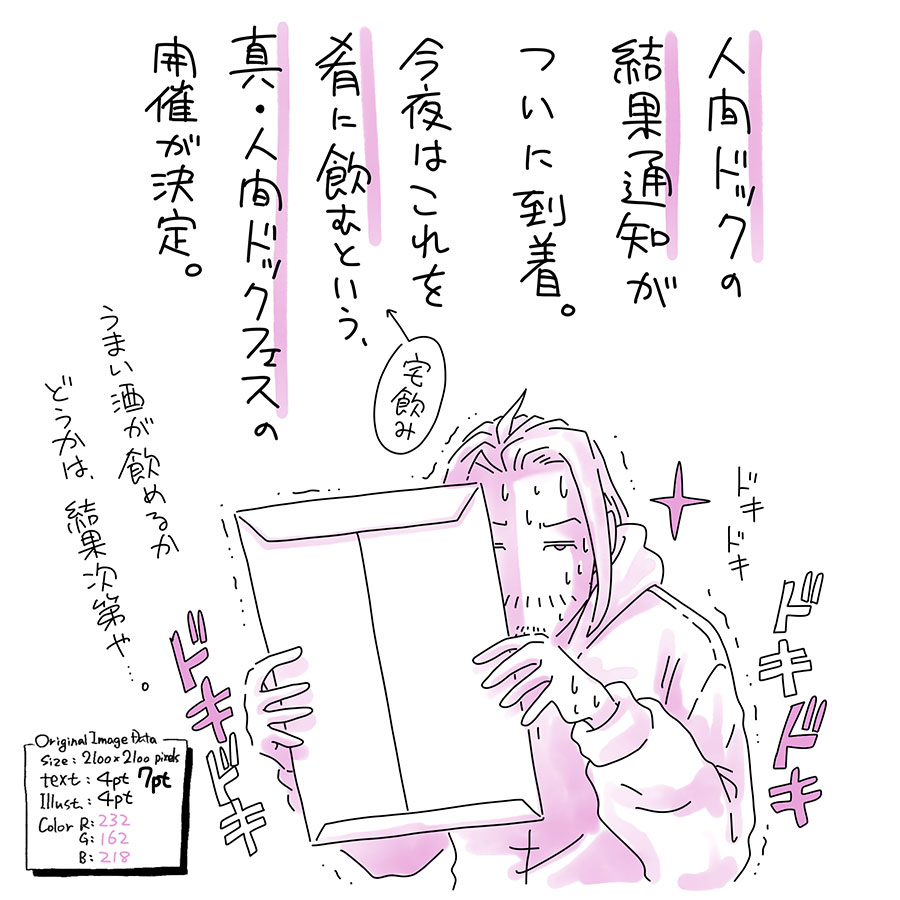 人間ドックの
結果通知が
ついに到着。
今夜はこれを
肴に飲むという、
真・人間ドックフェスの
開催が決定。
宅飲み
うまい酒が飲めるか
どうかは、結果次第や…。
ドキ
ドキ
ドキ
ドキ
ドキ
ドキ
Original Image Data
Size : 2100×2100 pixels
text : 4pt 7pt
Illust. : 4pt
Color R: 232
G: 162
B: 218